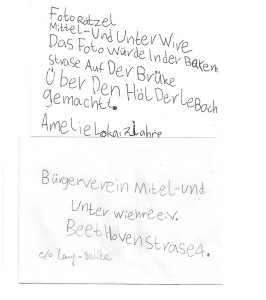 Foto Rätzel
Mittel-Und Unter Wire
Das Foto Würde In der
strase Auf Der Brüke
Über Den Höl Der le Bach
gemacht.
Amelie
Bürgerverein Mitel-und
Unter wiehre e.v.
BeetHovenstrase 4.
c/o Lang-